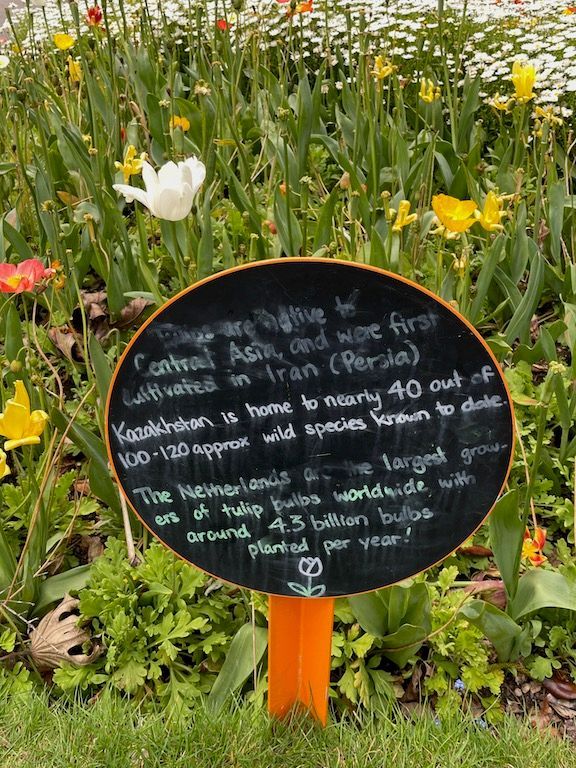 are native to
Central Asia, and were first
cultivated in Iran (Persia)
Kazakhstan is home to nearly 40 out of
100-120 approx wild species known to date.
The Netherlands are the largest grow-
ers of tulip bulbs worldwide with
around 4.3 billion bulbs
planted per year!